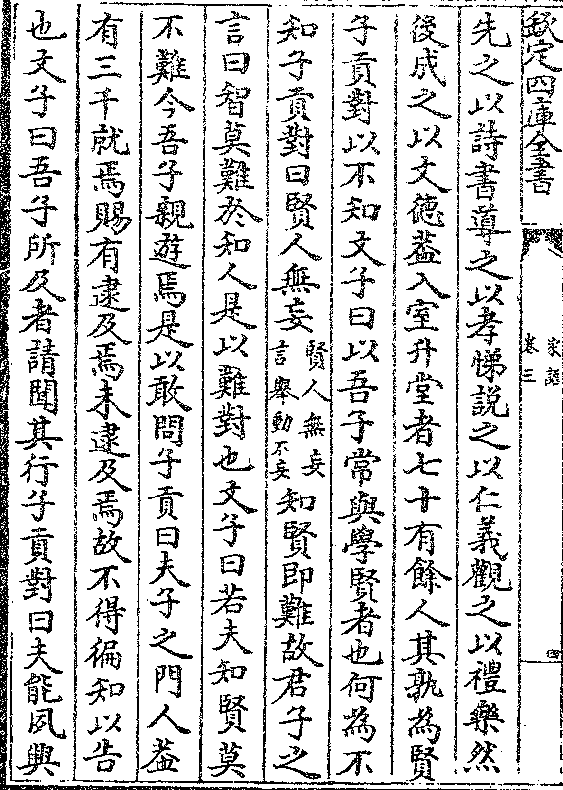 欽定四庫全書
家語
卷三
四
先之以詩書導之以孝悌説之以仁義觀之以禮樂然
後成之以文徳葢入室升堂者七十有餘人其孰為賢
子貢對以不知文子曰以吾子常與學賢者也何為不
知子貢對曰賢人無妄賢人無妄言舉動不妄知賢即難故君子之
言曰智莫難於知人是以難對也文子曰若夫知賢莫
不難今吾子親遊焉是以敢問子貢曰夫子之門人葢
有三千就焉賜有逮及焉未逮及焉故不得徧知以告
也文子曰吾子所及者請聞其行子貢對曰夫能夙興